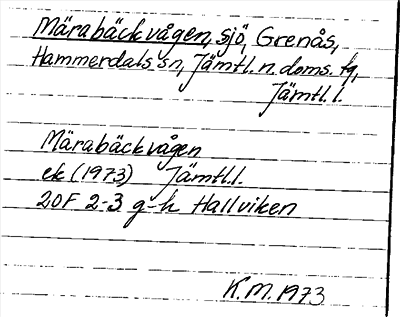 Märabäckvågen, sjö, Grenås,
Hammerdals sn, Jämtl. n. doms. fg,
Jämtl. l.
Märabäckvågen
ek (1973) Jämtl.l.
20F 2-3 g-h Hallviken
K.M. 1973